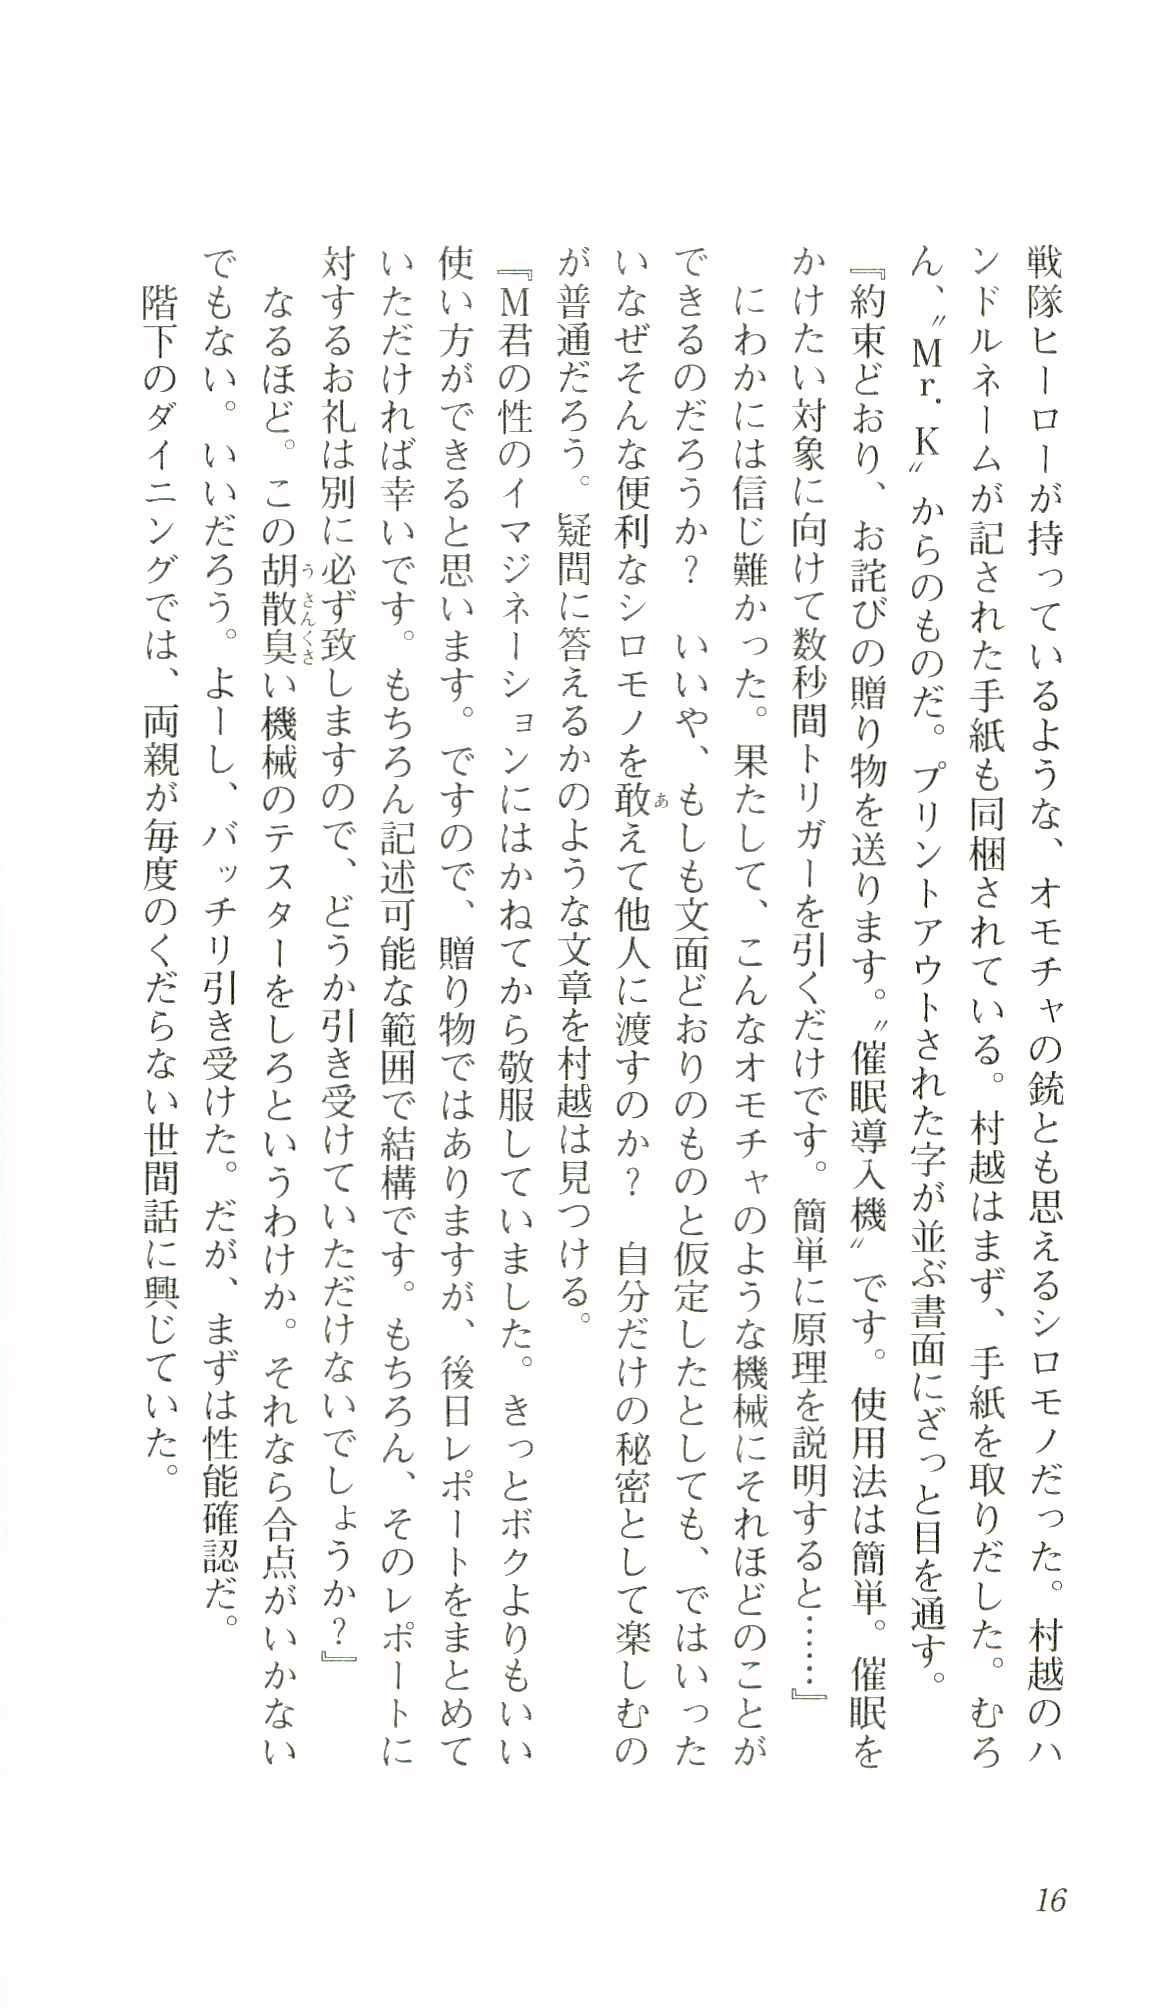 戦隊ヒーローが持っているような、オモチャの銃とも思えるシロモノだった。村越のハ
ンドルネームが記された手紙も同梱されている。村越はまず、手紙を取りだした。むろ
ん、〝Mr.K〟からのものだ。プリントアウトされた字が並ぶ書面にざっと目を通す。
『約束どおり、お詫びの贈り物を送ります。〝催眠導入機〟です。使用法は簡単。催眠を
かけたい対象に向けて数秒間トリガーを引くだけです。簡単に原理を説明すると……』
にわかには信じ難かった。果たして、こんなオモチャのような機械にそれほどのことが
できるのだろうか？　いいや、もしも文面どおりのものと仮定したとしても、ではいった
いなぜそんな便利なシロモノを敢えて他人に渡すのか？　自分だけの秘密として楽しむの
が普通だろう。疑問に答えるかのような文章を村越は見つける。
『M君の性のイマジネーションにはかねてから敬服していました。きっとボクよりもいい
使い方ができると思います。ですので、贈り物ではありますが、後日レポートをまとめて
いただければ幸いです。もちろん記述可能な範囲で結構です。もちろん、そのレポートに
対するお礼は別に必ず致しますので、どうか引き受けていただけないでしょうか？』
なるほど。この胡散臭い機械のテスターをしろというわけか。それなら合点がいかない
でもない。いいだろう。よーし、バッチリ引き受けた。だが、まずは性能確認だ。
階下のダイニングでは、両親が毎度のくだらない世間話に興じていた。
16